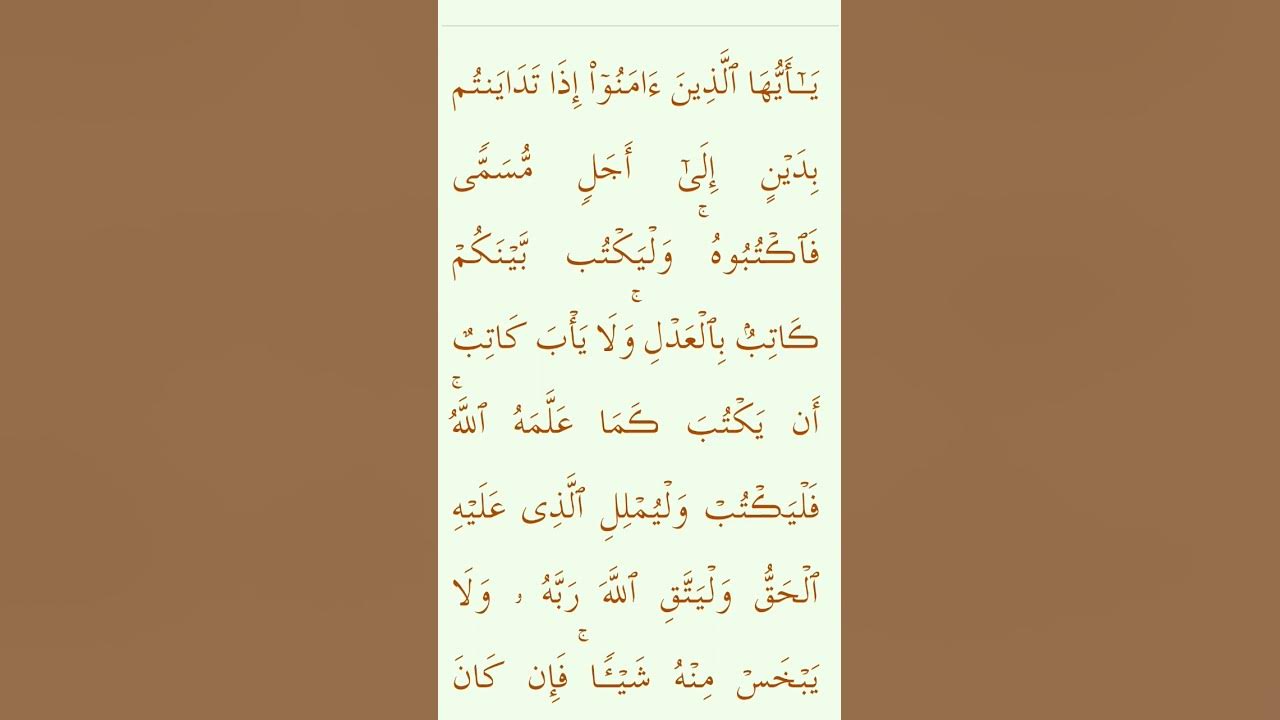 يَـٰٓأَيُّهَا ٱلَّذِينَ ءَامَنُوٓا۟ إِذَا تَدَايَنتُم
بِدَيْنٍ إِلَىٰٓ أَجَلٍ مُّسَمًّى
فَٱكْتُبُوهُ ۚ وَلْيَكْتُب بَّيْنَكُمْ
كَاتِبٌۢ بِٱلْعَدْلِ ۚ وَلَا يَأْبَ كَاتِبٌ
أَن يَكْتُبَ كَمَا عَلَّمَهُ ٱللَّهُ ۚ
فَلْيَكْتُبْ وَلْيُمْلِلِ ٱلَّذِى عَلَيْهِ
ٱلْحَقُّ وَلْيَتَّقِ ٱللَّهَ رَبَّهُۥ وَلَا
يَبْخَسْ مِنْهُ شَيْـًٔا ۚ فَإِن كَانَ